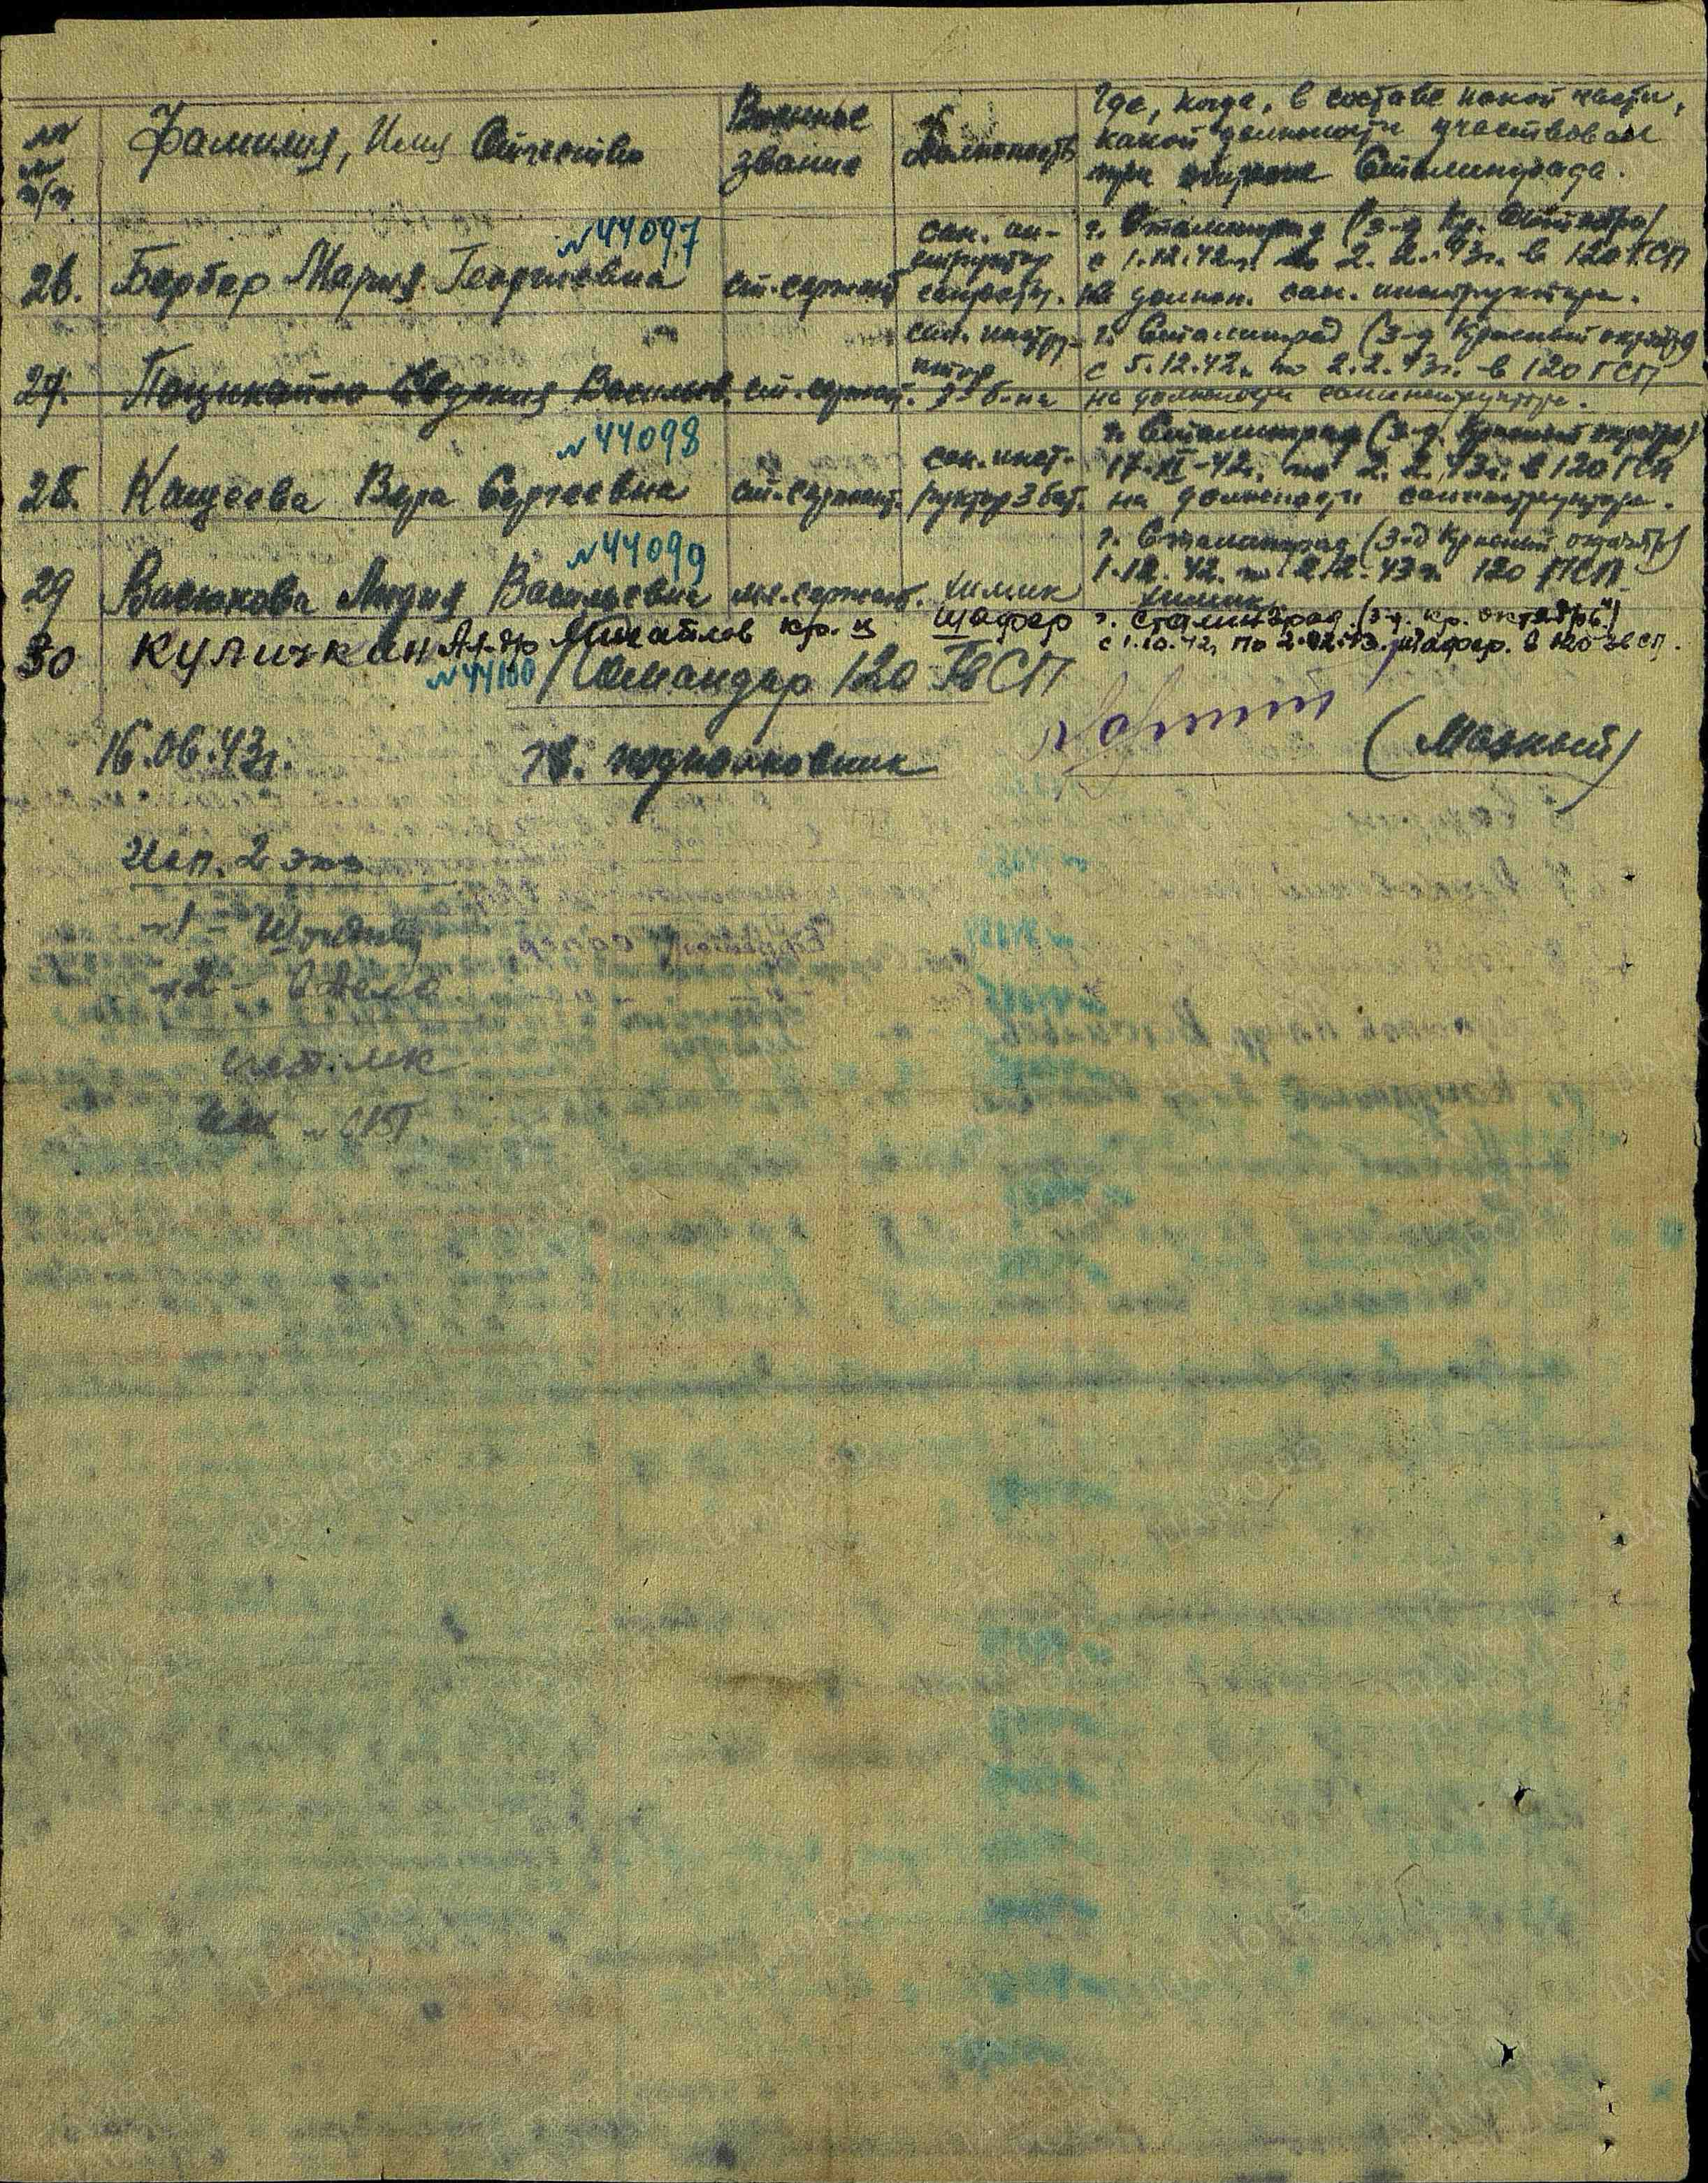 №№ п/п
Фамилия, Имя Отчество
Военное звание
Должность
Где, когда, в составе какой части,
какой должности участвовал
при обороне Сталинграда.
№44097
26. Барбер Мария Георгиевна
ст. сержант
сан. ин-
структор
г. Сталинград (з-д Кр. Октябрь)
с 1.12.42г. по 2.2.43г. в 120 ГСП
на должн. сан. инструктора.
27. Евдокия Васильев.
ст. сержант.
сан. инстру-
ктор
3 б-на
г. Сталинград (з-д Красный октябрь)
с 5.12.42г. по 2.2.43г. в 120 ГСП
на должности санинструктора.
№44098
28. Кащеева Вера Сергеевна
ст. сержант.
сан. инст-
руктор 3 бат.
г. Сталинград (з-д. Красный октябрь)
17-XI-42г. по 2.2.43г. в 120 ГСП
на должности санинструктора.
№44099
29 Васюкова Лидия Васильевна
мл. сержант.
химик
г. Сталинград (з-д Красный октябрь)
1.12.42. по 2.2.43г. 120 ГСП
химик
30 Куличкин Ал-др Михайлов кр-ц
шофер
г. Сталинград. (з-д. кр. октябрь")
с 1.10.42г по 2.02.43. шофер. в 120 гв СП.
№44100
Командир 120 ГвСП
16.06.43г.
Гв. подполковник
(Мазный)
Исп. 2 экз
№1 - Штадив
№2 - в дело